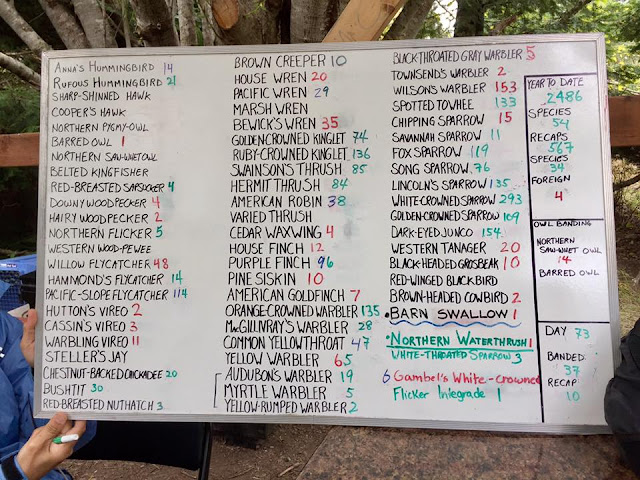 ANNA'S HUMMINGBIRD 14
RUFOUS HUMMINGBIRD 21
SHARP-SHINNED HAWK
COOPER'S HAWK
NORTHERN PYGMY-OWL
BARRED OWL 1
NORTHERN SAW-WHET OWL
BELTED KINGFISHER
RED-BREASTED SAPSUCKER 4
DOWNY WOODPECKER 4
HAIRY WOODPECKER 2
NORTHERN FLICKER 5
WESTERN WOOD-PEWEE
WILLOW FLYCATCHER 48
HAMMOND'S FLYCATCHER 14
PACIFIC-SLOPE FLYCATCHER 114
HUTTON'S VIREO 2
CASSIN'S VIREO 3
WARBLING VIREO 11
STELLER'S JAY
CHESTNUT-BACKED CHICKADEE 20
BUSHTIT 30
RED-BREASTED NUTHATCH 3
BROWN CREEPER 10
HOUSE WREN 20
PACIFIC WREN 29
MARSH WREN
BEWICK'S WREN 35
GOLDEN-CROWNED KINGLET 74
RUBY-CROWNED KINGLET 136
SWAINSON'S THRUSH 85
HERMIT THRUSH 84
AMERICAN ROBIN 38
VARIED THRUSH
CEDAR WAXWING 4
HOUSE FINCH 12
PURPLE FINCH 96
PINE SISKIN 10
AMERICAN GOLDFINCH 7
ORANGE-CROWNED WARBLER 135
MacGILLIVRAY'S WARBLER 28
COMMON YELLOWTHROAT 47
YELLOW WARBLER 65
AUDUBON'S WARBLER 19
MYRTLE WARBLER 5
YELLOW-RUMPED WARBLER 2
BLACK-THROATED GRAY WARBLER 5
TOWNSEND'S WARBLER 2
WILSON'S WARBLER 153
SPOTTED TOWHEE 133
CHIPPING SPARROW 15
SAVANNAH SPARROW 11
FOX SPARROW 119
SONG SPARROW 76
LINCOLN'S SPARROW 135
WHITE-CROWNED SPARROW 293
GOLDEN-CROWNED SPARROW 169
DARK-EYED JUNCO 154
WESTERN TANAGER 20
BLACK-HEADED GROSBEAK 10
RED-WINGED BLACKBIRD
BROWN-HEADED COWBIRD 2
• BARN SWALLOW 1
• NORTHERN WATERTHRUSH 1
WHITE-THROATED SPARROW 3
6 Gambel's White-crowned
Flicker Intergrade 1
YEAR TO DATE
2486
SPECIES
54
RECAPS
567
SPECIES
34
FOREIGN
4
OWL BANDING
NORTHERN
SAW-WHET OWL
14
BARRED OWL
DAY 73
BANDED
37
RECAP
10